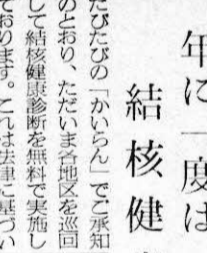 年に一度は
結核健
たびたびの「かいらん」でご承知
のとおり、ただいま各地区を巡回
して結核健康診断を無料で実施し
ております。これは法律に基づい